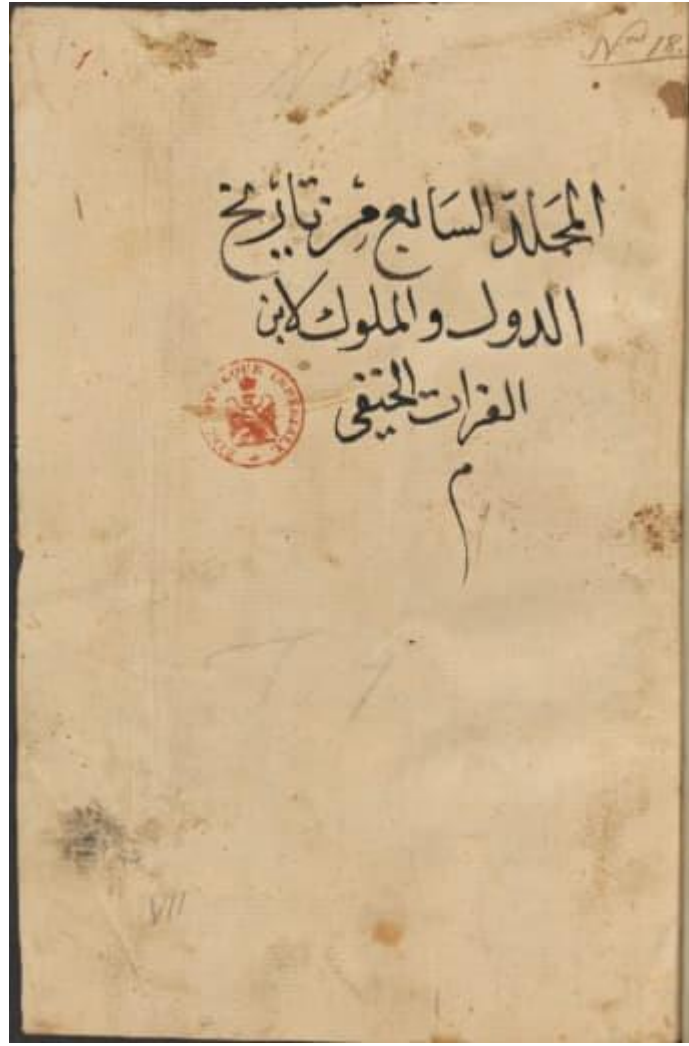 Nro 18.
المجلد السابع من تاريخ
الدول والملوك لابن
الفرات الحنفى
م
VII